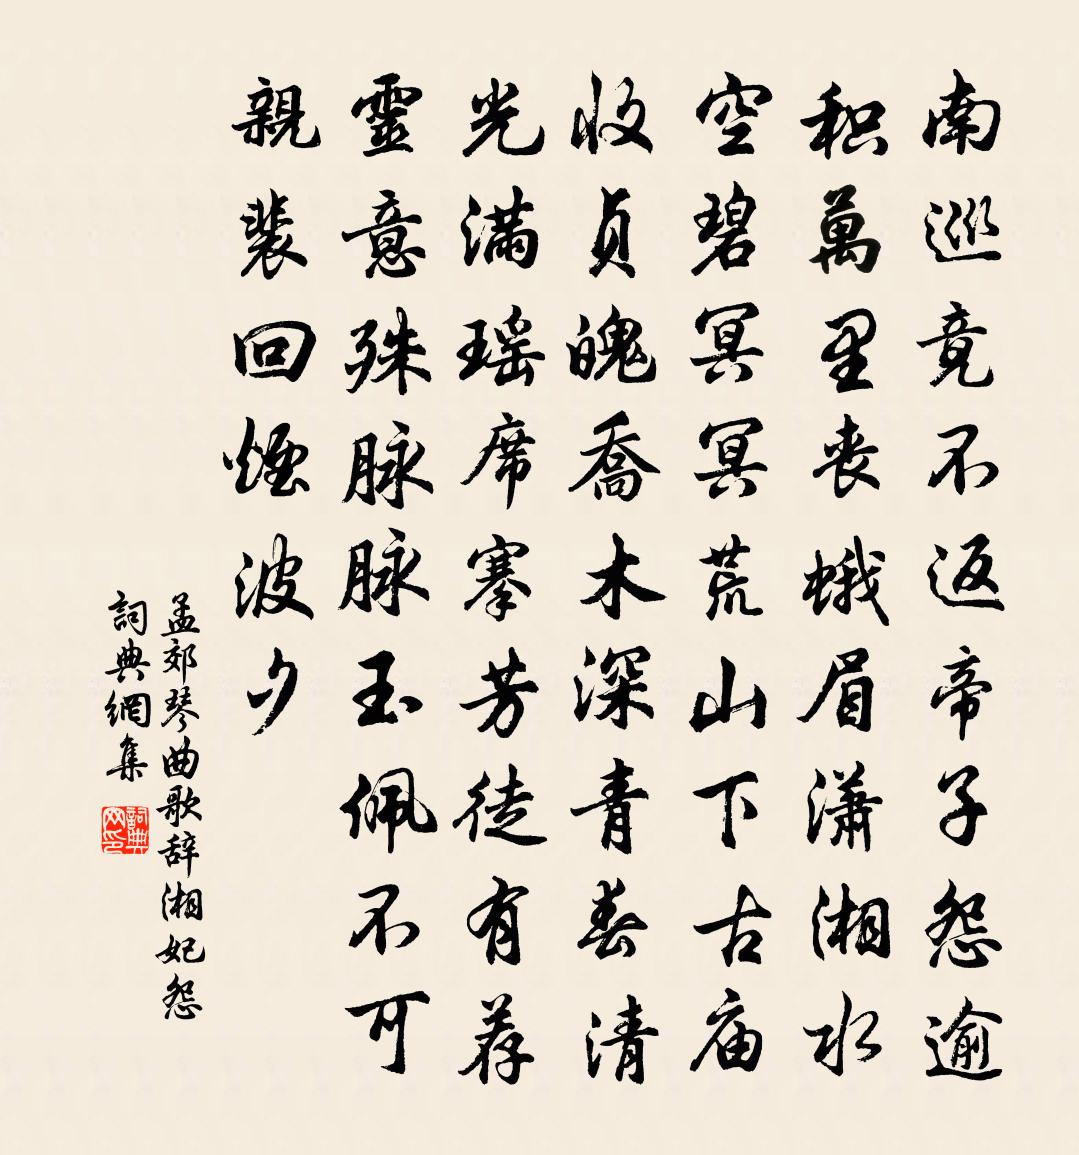 南巡竟不返帝子怨逾
积萬里喪蛾眉瀟湘水
空碧冥冥荒山下古庙
收貞魄喬木深青春清
光滿瑶席搴芳徒有荐
靈意殊脉脉玉佩不可
親裴回煙波夕
孟郊琴曲歌辞湘妃怨
詞典網集
詞典网印